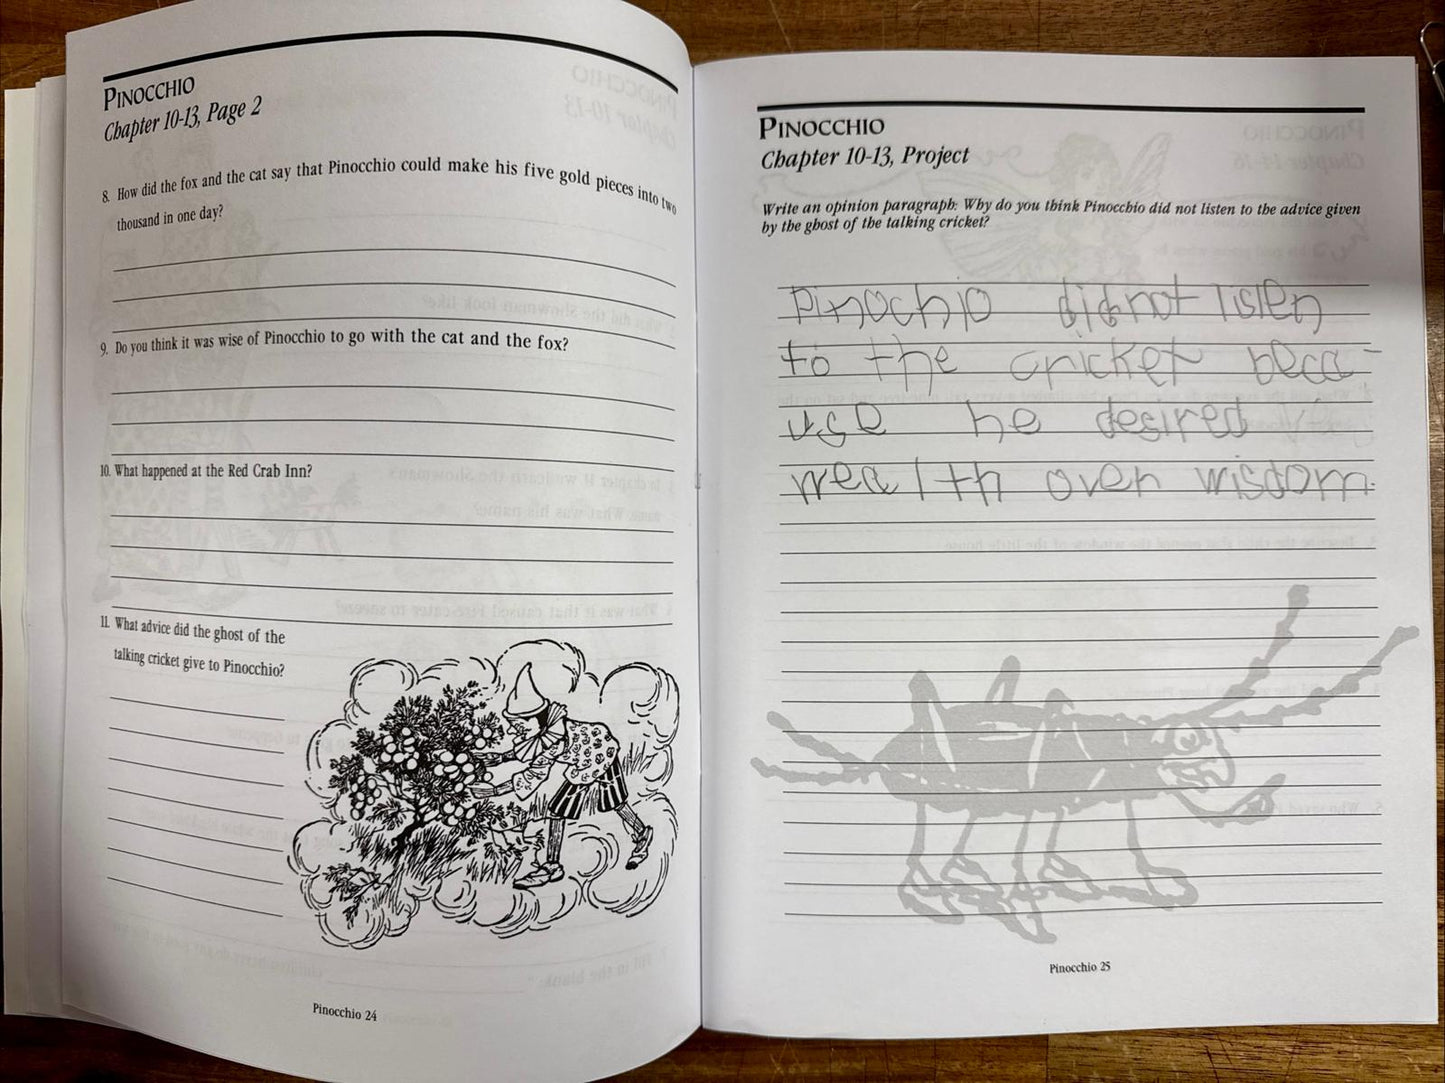 PINOCCHIO
Chapter 10-13, Page 2
8. How did the fox and the cat say that Pinocchio could make his five gold pieces into two
thousand in one day?
9. Do you think it was wise of Pinocchio to go with the cat and the fox?
10. What happened at the Red Crab Inn?
11. What advice did the ghost of the
talking cricket give to Pinocchio?
Pinocchio 24
PINOCCHIO
Chapter 10-13, Project
Write an opinion paragraph: Why do you think Pinocchio did not listen to the advice given
by the ghost of the talking cricket?
Pinochio did not listen
to the cricket beca-
use he desired
wealth over wisdom.
Pinocchio 25